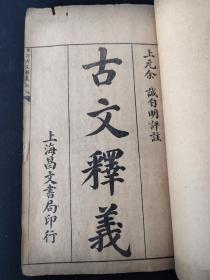 上元余 誠自明評註
古文釋義
上海昌文書局印行